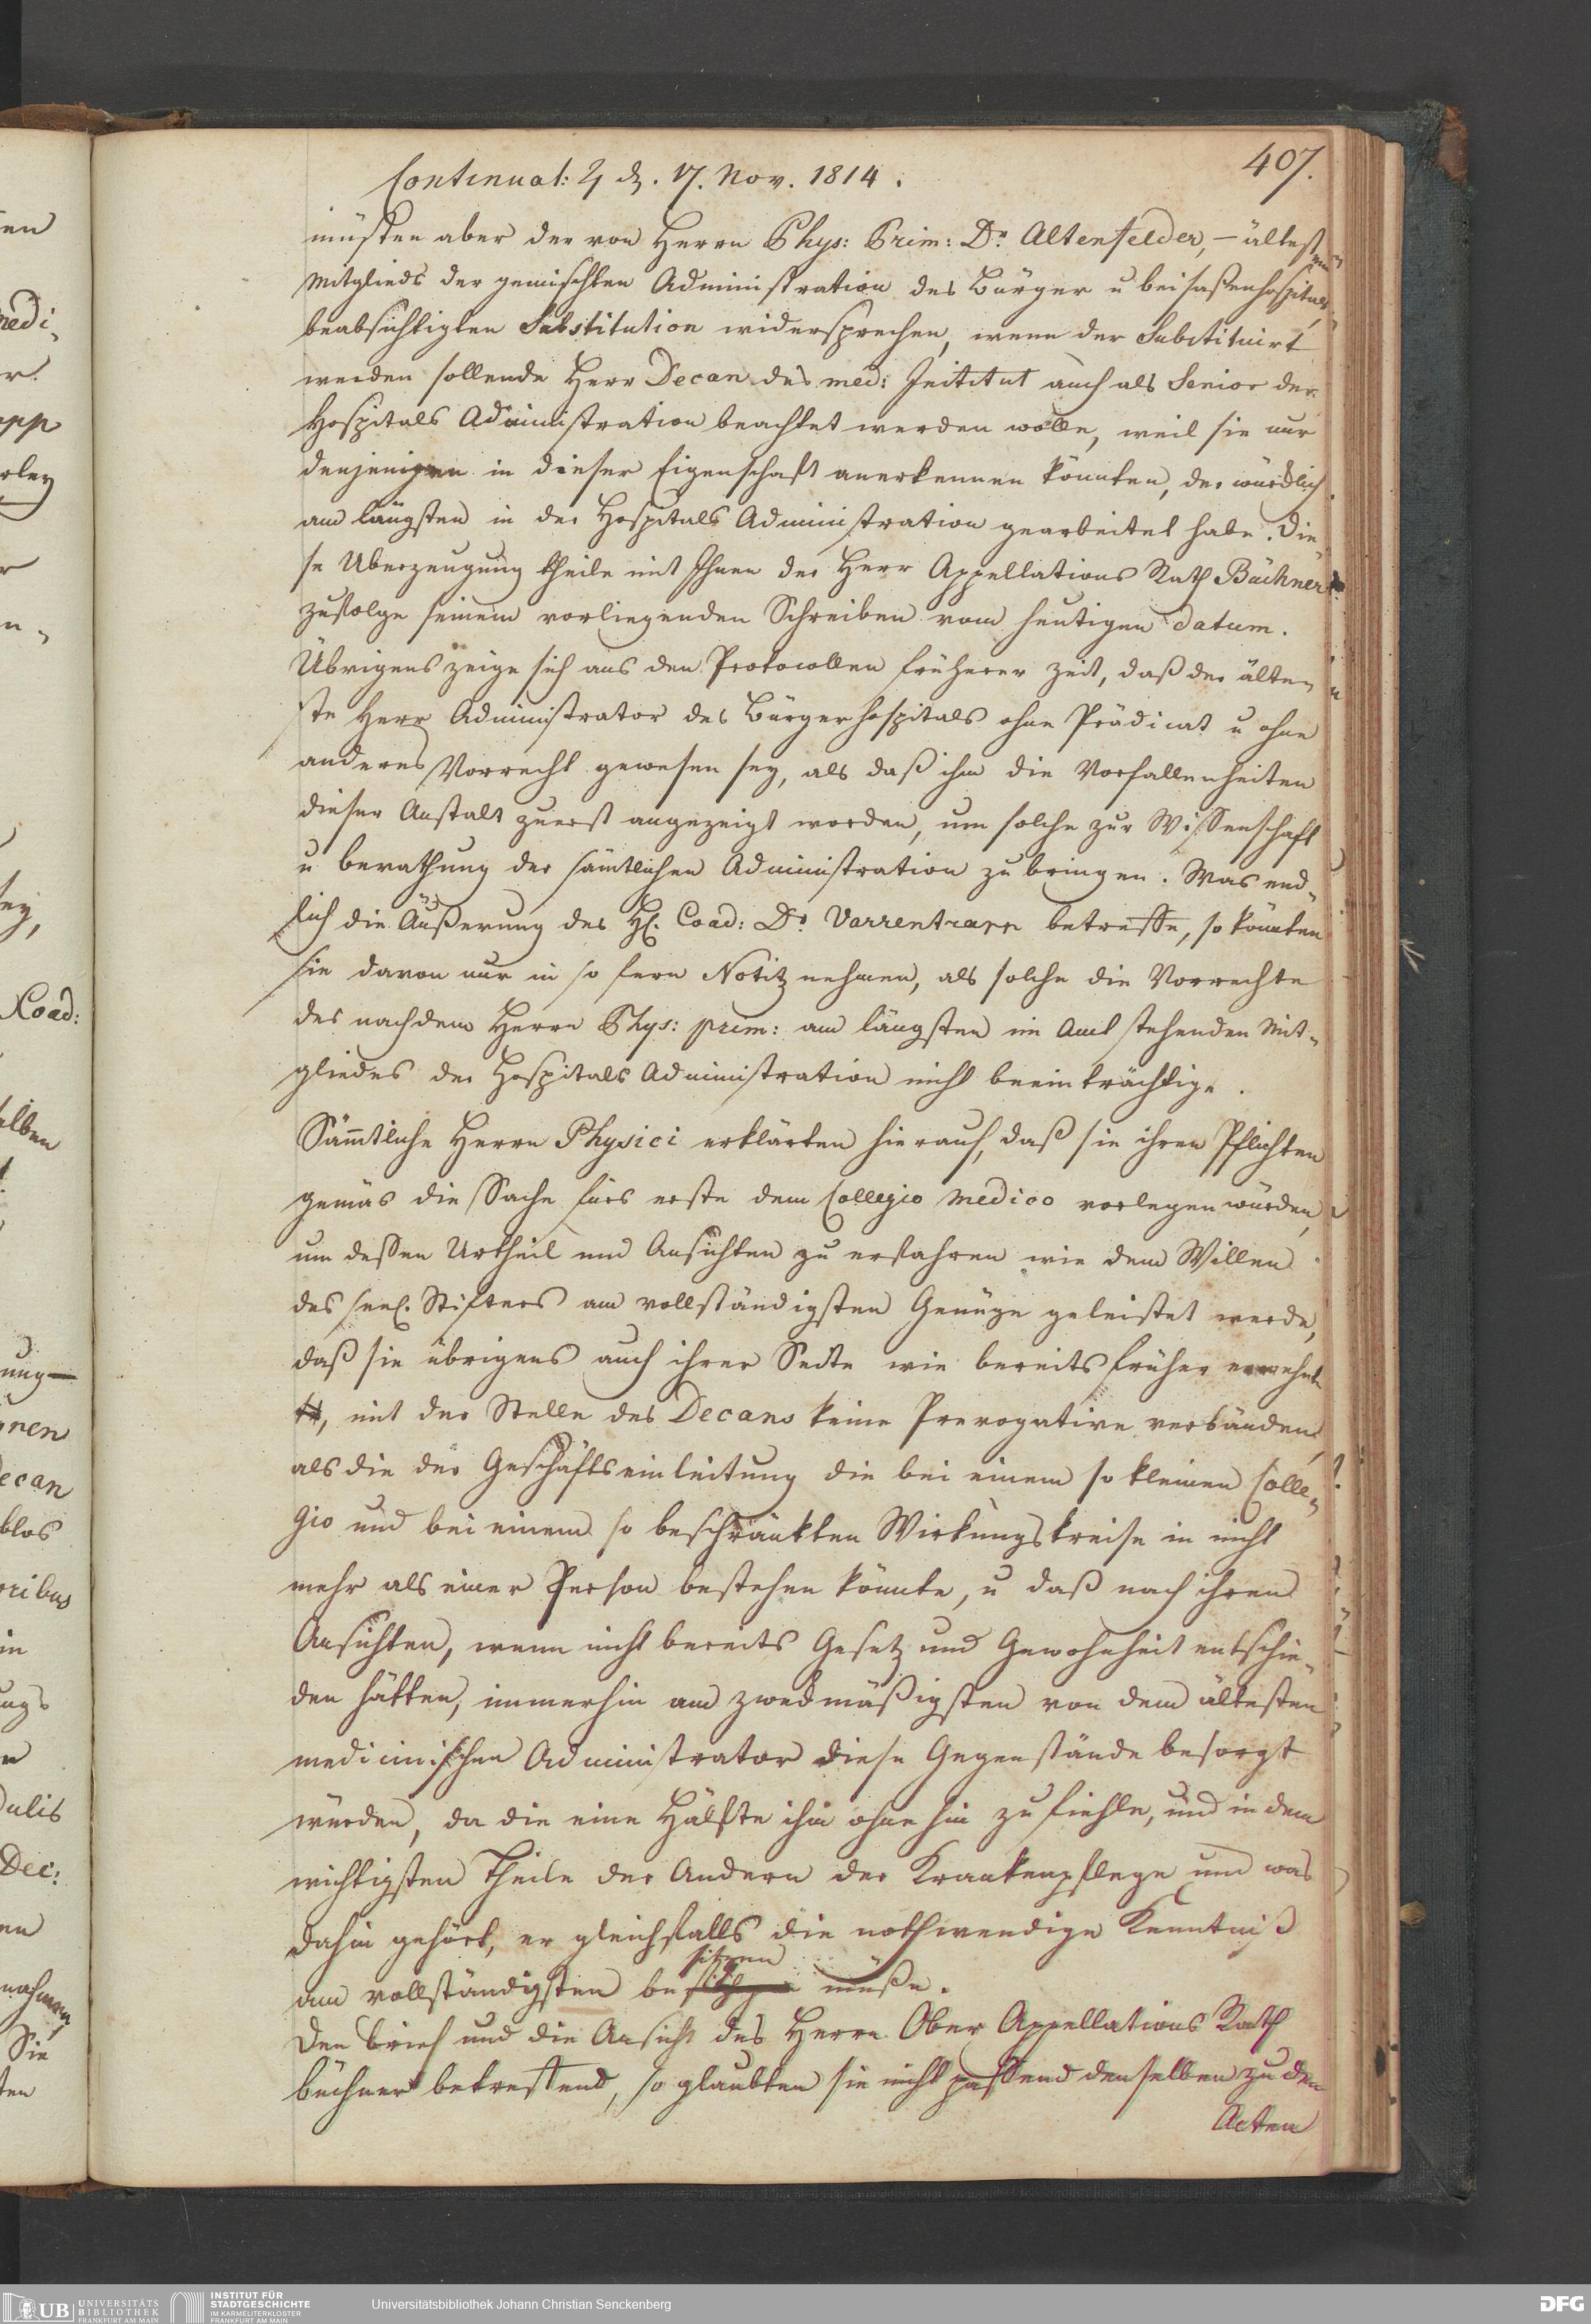 407.
Continuat: ♃ d. 17. Nov. 1814.
müsten aber der von Herrn Phys: Prim: Dr Altenfelder, – ältestem
Mitglieds der gemischten Administration des Bürger u beisaßenhospitals,
beabsichtigten Substitution widersprechen, wenn der Substituirt
werden sollende Herr Decan des med: Institut auch als Senior der
Hospitals Administration beachtet werden wolle, weil sie nur
denjenigen in dieser Eigenschaft anerkennen könnten, der würdlich
am längsten in der Hospitals Administration gearbeitet habe. Die„
se Uberzeugung theile mit Ihnen der Herr Appellations Rath Büchner
zufolge seinem vorliegenden Schreiben vom heutigen datum.
Übrigens zeige sich aus den Protocollen früherer Zeit, daß der älte„
ste Herr Administrator des Bürgerhospitals ohne Prädicat u ohne
anderes Vorrecht gewesen sey, als daß ihm die Vorfallenheiten
dieser Anstalt zuerst angezeigt worden, um solche zur Wissenschaft
u berathung der sämtlichen Administration zu bringen. Was end„
lich die Äußerung des H. Coad: Dr Varrentrapp betreffe, so könnten
sie davon nur in so fern Notitz nehmen, als solche die Vorrechte
des nach dem Herrn Phys: prim: am längsten im Amt stehenden Mit„
gliedes der Hospitals Administration nicht beeinträchtige.
Sämtliche Herrn Physici erklärten hierauf, daß sie ihren Pflichten
gemäs die Sache fürs erste dem Collegio medico vorlegen würden,
um deßen Urtheil und Ansichten zu erfahren wie dem Willen
des seel. Stifters am vollständigsten Genüge geleistet werde,
daß sie übrigens auch ihrer Seite wie bereits früher erwehnt
, mit der Stelle des Decans keine Prerogative verbänden,
als die der Geschäftseinleitung die bei einem so kleinen Colle„
gio und bei einem so beschränkten Wirkungskreise in nicht
mehr als einer Person bestehen könnte, u daß nach ihren
Ansichten, wenn nicht bereits Gesetz und Gewohnheit entschie„
den hätten, immerhin am zwedmäßigsten von dem ältesten
medicinischen Administrator diese Gegenstände besorgt
würden, da die eine Hälfte ihm ohnehin zufiehle, und in dem
wichtigsten Theile der Andern der Krankenpflege und was
dahin gehört, er gleichfalls die nothwendige Kenntniß
am vollständigsten besitzen müße.
Den brief und die Ansicht des Herrn Ober Appellations Rath
büchner betreffend, so glaubten sie nicht passend denselben zu den
Acten
UB UNIVERSITÄTS BIBLIOTHEK FRANKFURT AM MAIN
INSTITUT FÜR STADTGESCHICHTE IM KARMELITERKLOSTER FRANKFURT AM MAIN
Universitätsbibliothek Johann Christian Senckenberg
DFG